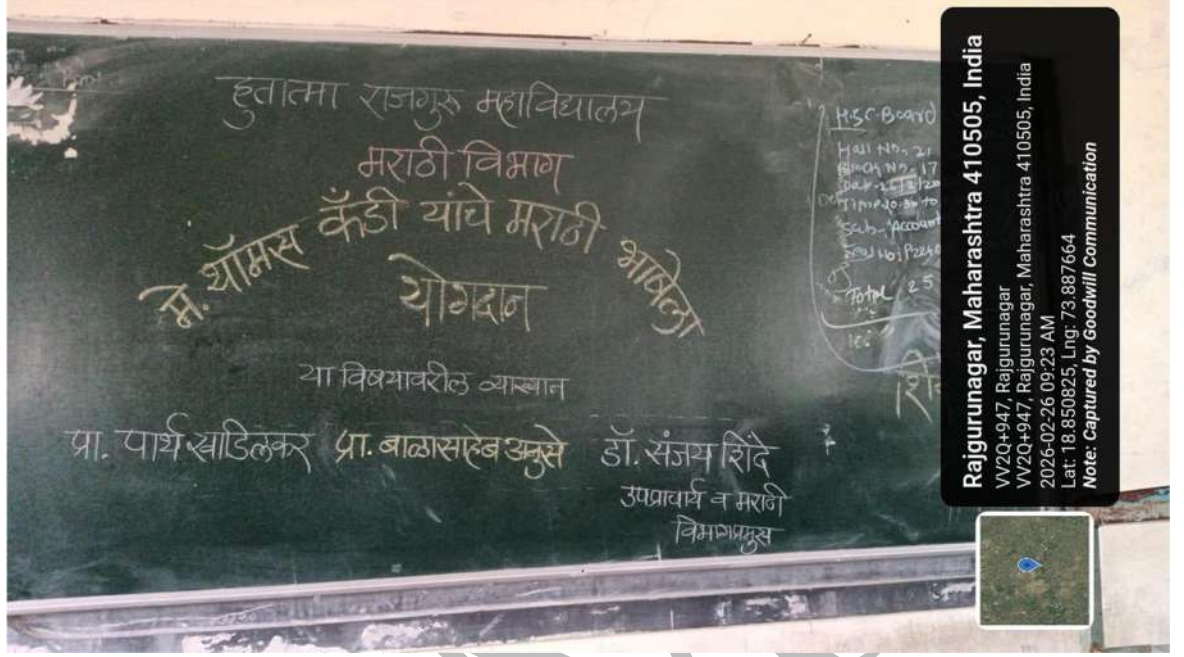 हुतात्मा राजगुरू महाविद्यालय
मराठी विभाग
मे. थॉमस कँडी यांचे मराठी भाषेला
योगदान
या विषयावरील व्याख्यान
प्रा. पार्थ खाडिलकर
प्रा. बाळासाहेब अनुसे
डॉ. संजय शिंदे
उपप्राचार्य व मराठी
विभागप्रमुख
H.S.C. Board
Hall No. 21
Block No. 17
Time-10.30 to
Sub- Account
Total 25
Rajgurunagar, Maharashtra 410505, India
VV2Q+947, Rajgurunagar
VV2Q+947, Rajgurunagar, Maharashtra 410505, India
2026-02-26 09:23 AM
Lat: 18.850825, Lng: 73.887664
Note: Captured by Goodwill Communication